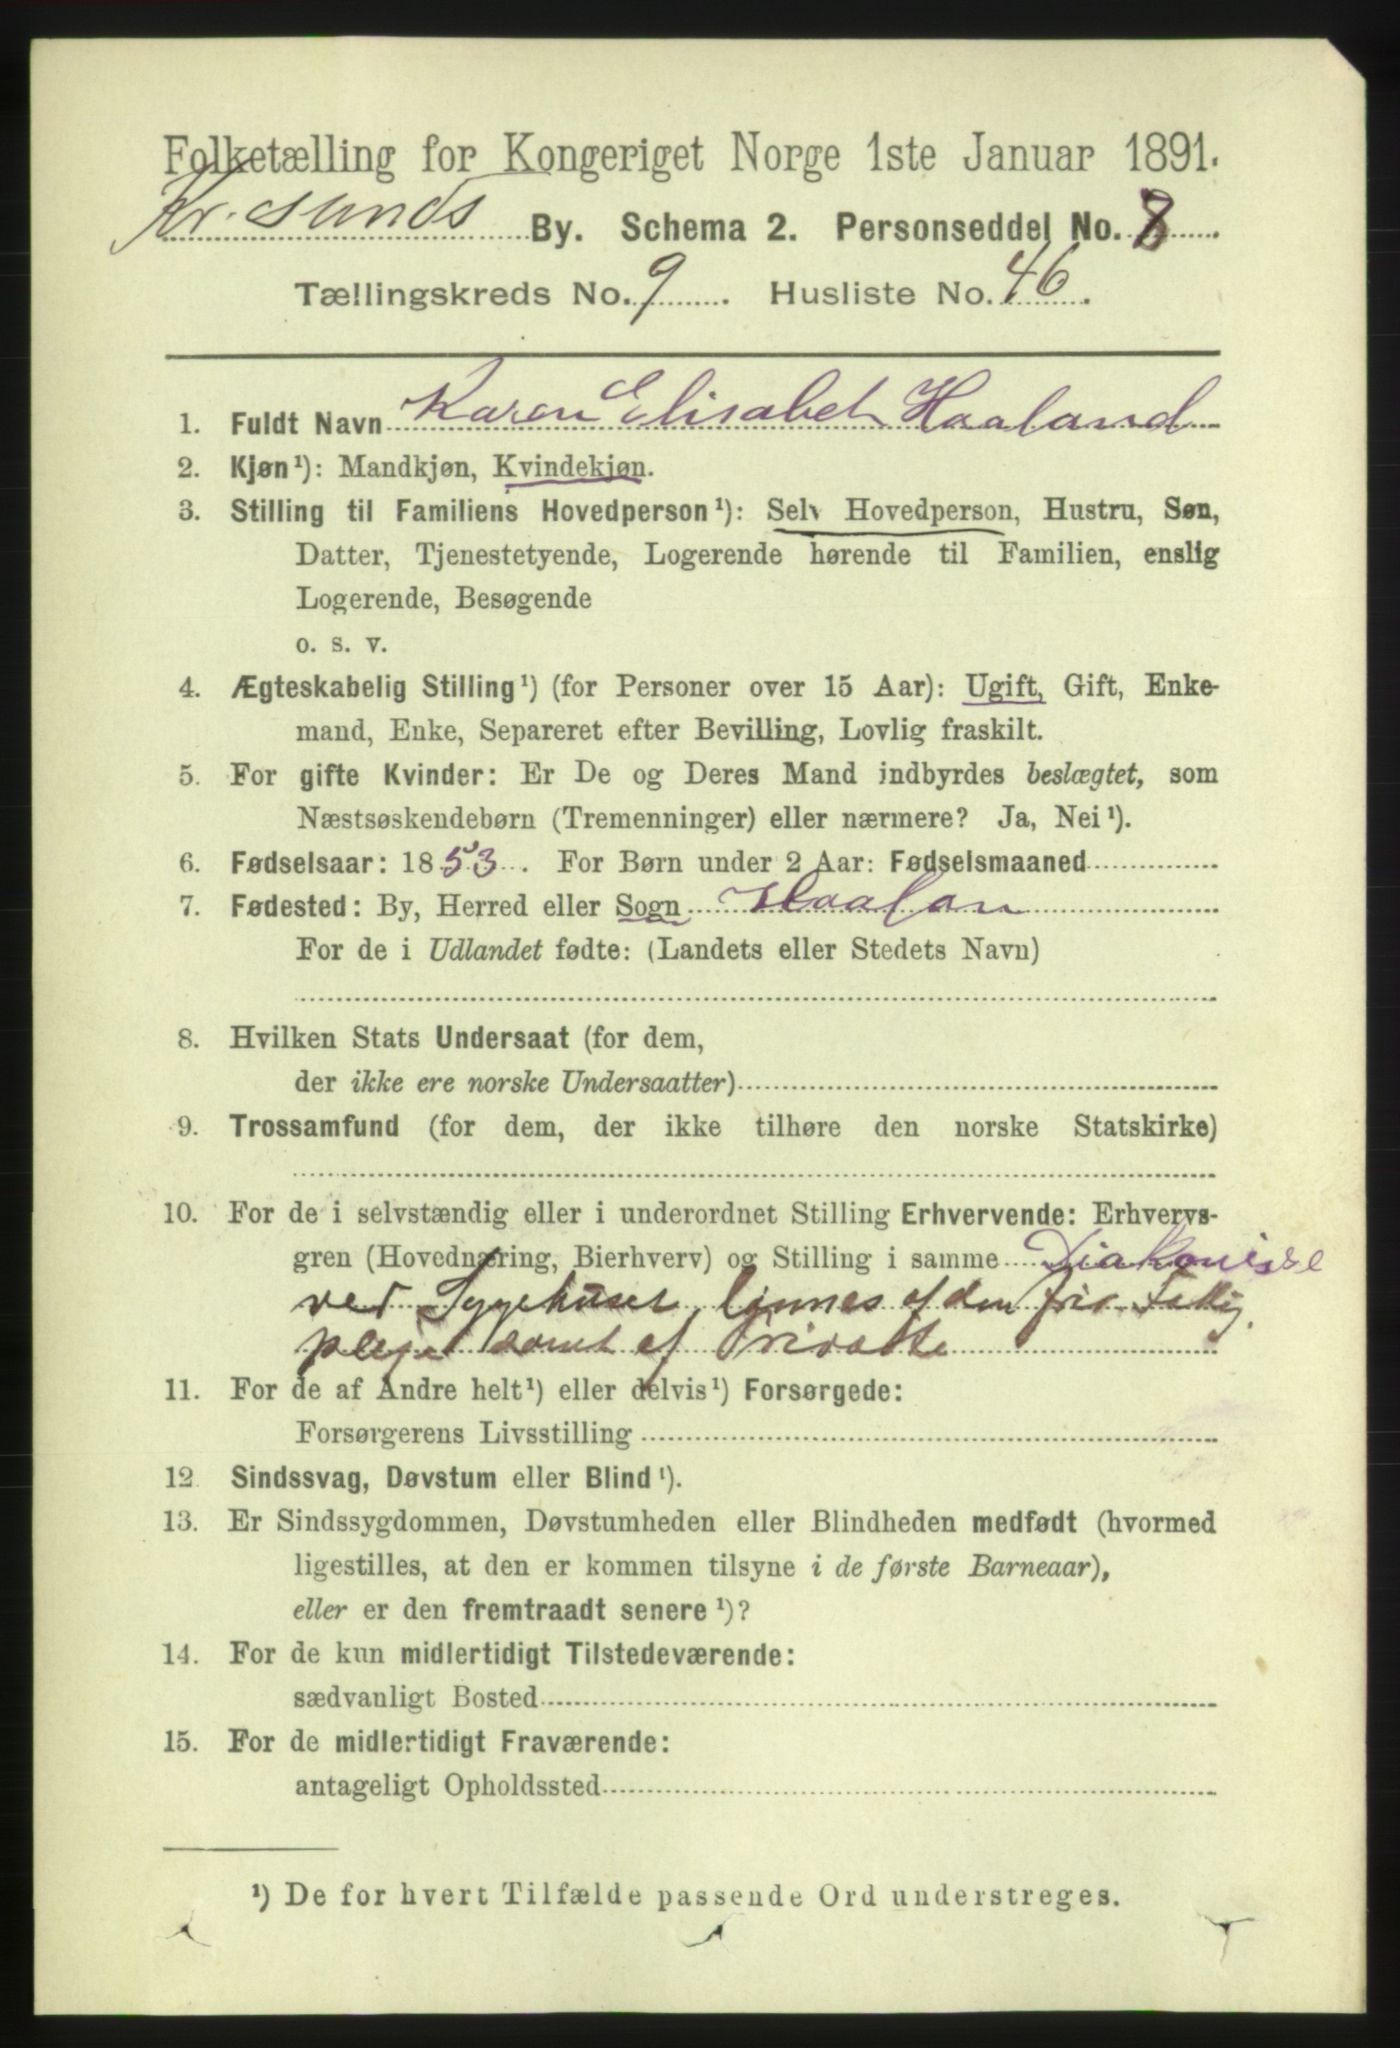 Folketælling for Kongeriget Norge 1ste Januar 1891.
Kr.sunds By. Schema 2. Personseddel No. 8
Tællingskreds No. 9. Husliste No. 46.
1. Fuldt Navn Karen Elisabet Haaland
2. Kjøn¹): Mandkjøn, Kvindekjøn.
3. Stilling til Familiens Hovedperson¹): Selv Hovedperson, Hustru, Søn,
Datter, Tjenestetyende, Logerende hørende til Familien, enslig
Logerende, Besøgende
o. s. v.
4. Ægteskabelig Stilling¹) (for Personer over 15 Aar): Ugift, Gift, Enke-
mand, Enke, Separeret efter Bevilling, Lovlig fraskilt.
5. For gifte Kvinder: Er De og Deres Mand indbyrdes beslægtet, som
Næstsøskendebørn (Tremenninger) eller nærmere? Ja, Nei¹).
6. Fødselsaar: 1853. For Børn under 2 Aar: Fødselsmaaned
7. Fødested: By, Herred eller Sogn Haalan
For de i Udlandet fødte: (Landets eller Stedets Navn)
8. Hvilken Stats Undersaat (for dem,
der ikke ere norske Undersaatter)
9. Trossamfund (for dem, der ikke tilhøre den norske Statskirke)
10. For de i selvstændig eller i underordnet Stilling Erhvervende: Erhvervs-
gren (Hovednæring, Bierhverv) og Stilling i samme Diakonisse
ved Sygehuset, lønnes af den fri Fattig
pleje samt af Private
11. For de af Andre helt¹) eller delvis¹) Forsørgede:
Forsørgerens Livsstilling
12. Sindssvag, Døvstum eller Blind¹).
13. Er Sindssygdommen, Døvstumheden eller Blindheden medfødt (hvormed
ligestilles, at den er kommen tilsyne i de første Barneaar),
eller er den fremtraadt senere¹)?
14. For de kun midlertidigt Tilstedeværende:
sædvanligt Bosted
15. For de midlertidigt Fraværende:
antageligt Opholdssted
¹) De for hvert Tilfælde passende Ord understreges.